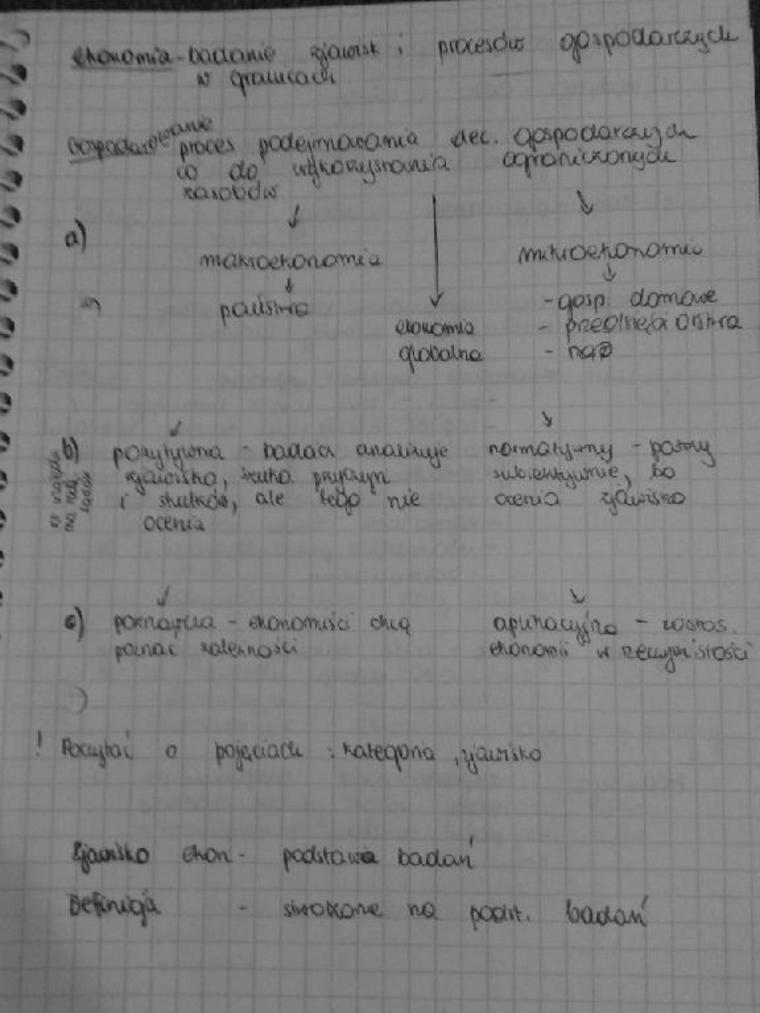 ekonomia - badanie zjawisk i procesów gospodarczych
w granicach
Gospodarowanie proces podejmowania dec. gospodarczych
co do wykorzystania ograniczonych
zasobów
a)
makroekonomia
mikroekonomia
państwo
- gosp. domowe
ekonomia
- przedsiębiorstwa
globalna
b) pozytywna - badacz analizuje
zjawisko, szuka przyczyn
i skutków, ale tego nie
ocenia
normatywny - patrzy
subiektywnie, bo
ocenia zjawisko
c) poznawcza - ekonomiści chcą
poznać zależności
aplikacyjna - zastos.
ekonomii w rzeczywistości
! Poczytać o pojęciach : kategoria, zjawisko
Zjawisko ekon - podstawa badań
Definicja - stworzone na podst. badań